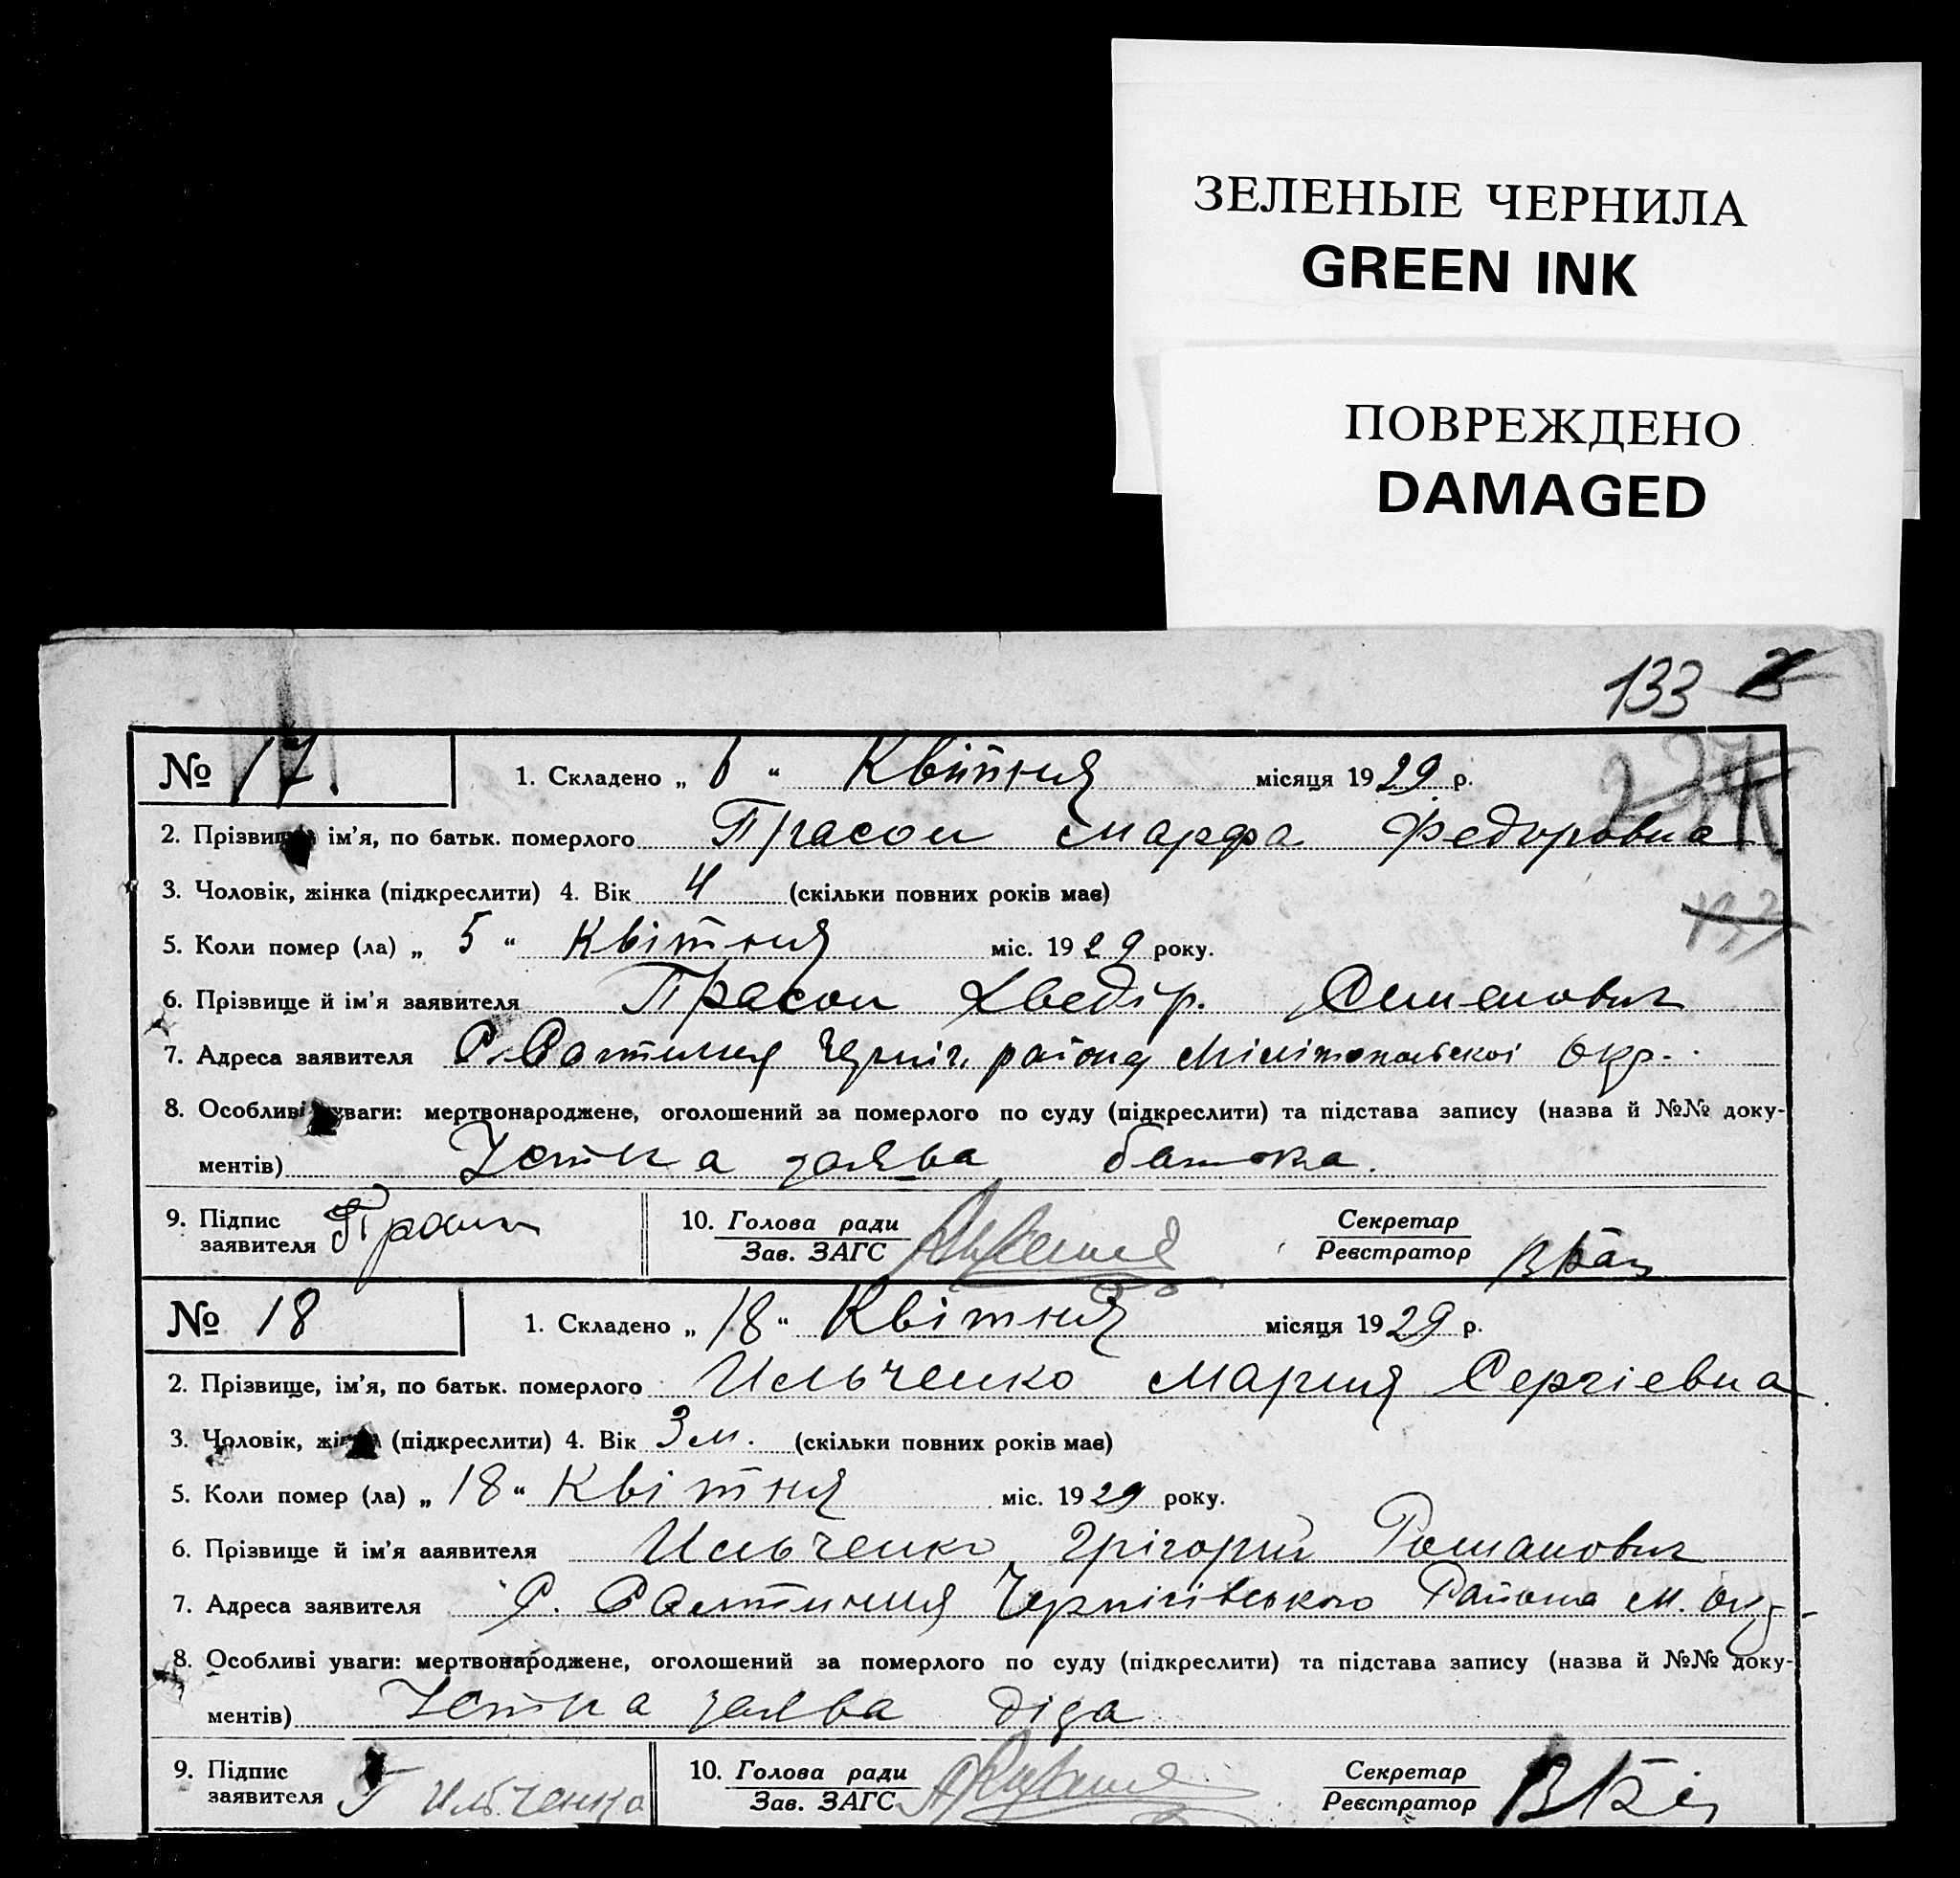 ЗЕЛЕНЫЕ ЧЕРНИЛА
GREEN INK
ПОВРЕЖДЕНО
DAMAGED
133
№ 17. 1. Складено „ 6 “ Квітня місяця 1929 р.
2. Прізвище ім'я, по батьк. померлого Прасол Марфа Федоровна
3. Чоловік, жінка (підкреслити) 4. Вік 4 (скільки повних років має)
5. Коли помер (ла) „ 5 “ Квітня міс. 1929 року.
6. Прізвище й ім'я заявителя Прасол Хведір. Семенович
7. Адреса заявителя С. Черніг. району Мілітопольскоі Окр.
8. Особливі уваги: мертвонароджене, оголошений за померлого по суду (підкреслити) та підстава запису (назва й №№ доку-
ментів) Устна заява батька.
9. Підпис 10. Голова ради Секретар
заявителя Зав. ЗАГС Реєстратор
№ 18 1. Складено „ 18 “ Квітня місяця 1929 р.
2. Прізвище, ім'я, по батьк. померлого Ильченко Мария Сергіевна
3. Чоловік, жінка (підкреслити) 4. Вік 3 м. (скільки повних років має)
5. Коли помер (ла) „ 18 “ Квітня міс. 1929 року.
6. Прізвище й ім'я заявителя Ильченко Грігорий Романович
7. Адреса заявителя С. Чернігівського Района М. Окр.
8. Особливі уваги: мертвонароджене, оголошений за померлого по суду (підкреслити) та підстава запису (назва й №№ доку-
ментів) Устна заява діда
9. Підпис 10. Голова ради Секретар
заявителя Г Ильченко Зав. ЗАГС Реєстратор